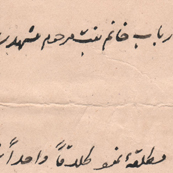 رباب خانم بنت مرحوم مشهدی
مطلقة طلاقاً واحداً